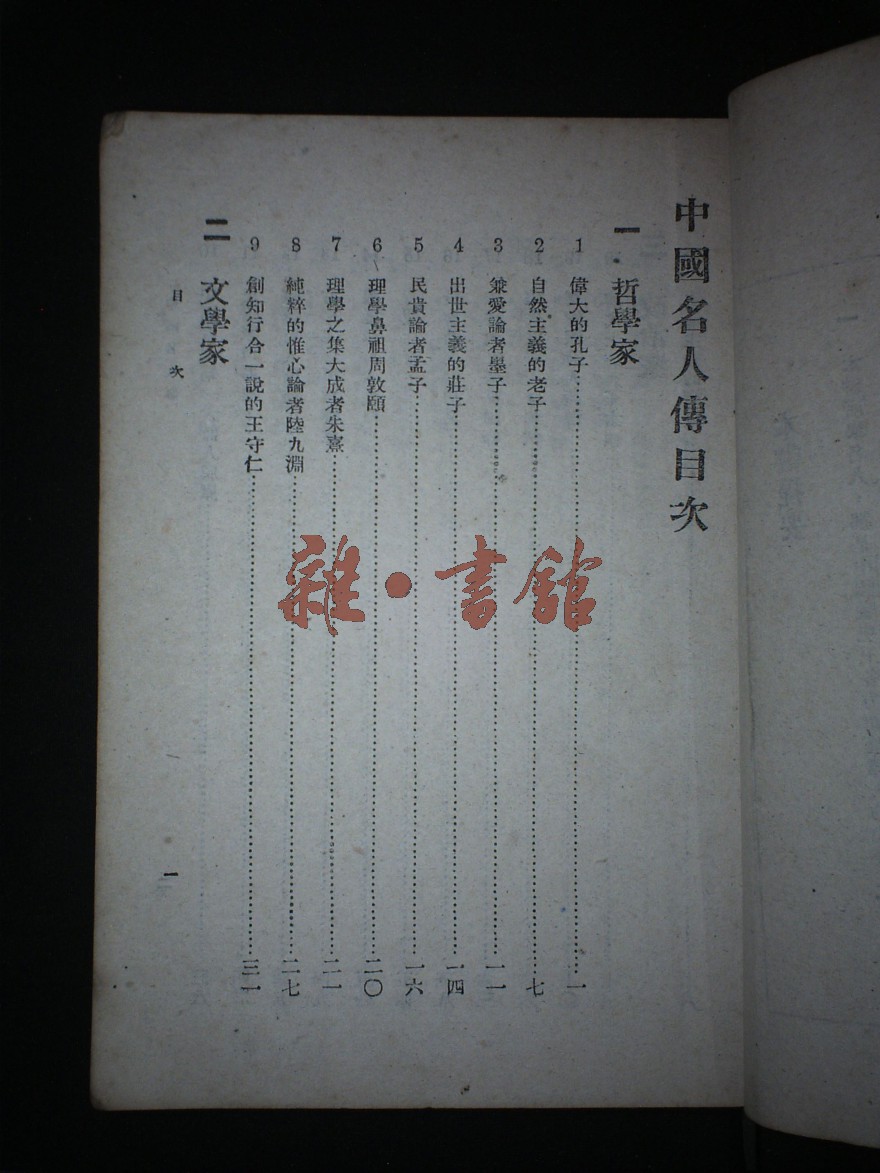 中國名人傳目次
一 哲學家
1 偉大的孔子 一
2 自然主義的老子 七
3 兼愛論者墨子 一一
4 出世主義的莊子 一四
5 民貴論者孟子 一六
6 理學鼻祖周敦頤 二〇
7 理學之集大成者朱熹 二一
8 純粹的惟心論者陸九淵 二七
9 創知行合一說的王守仁 三一
二 文學家
目次 一
雜·書館